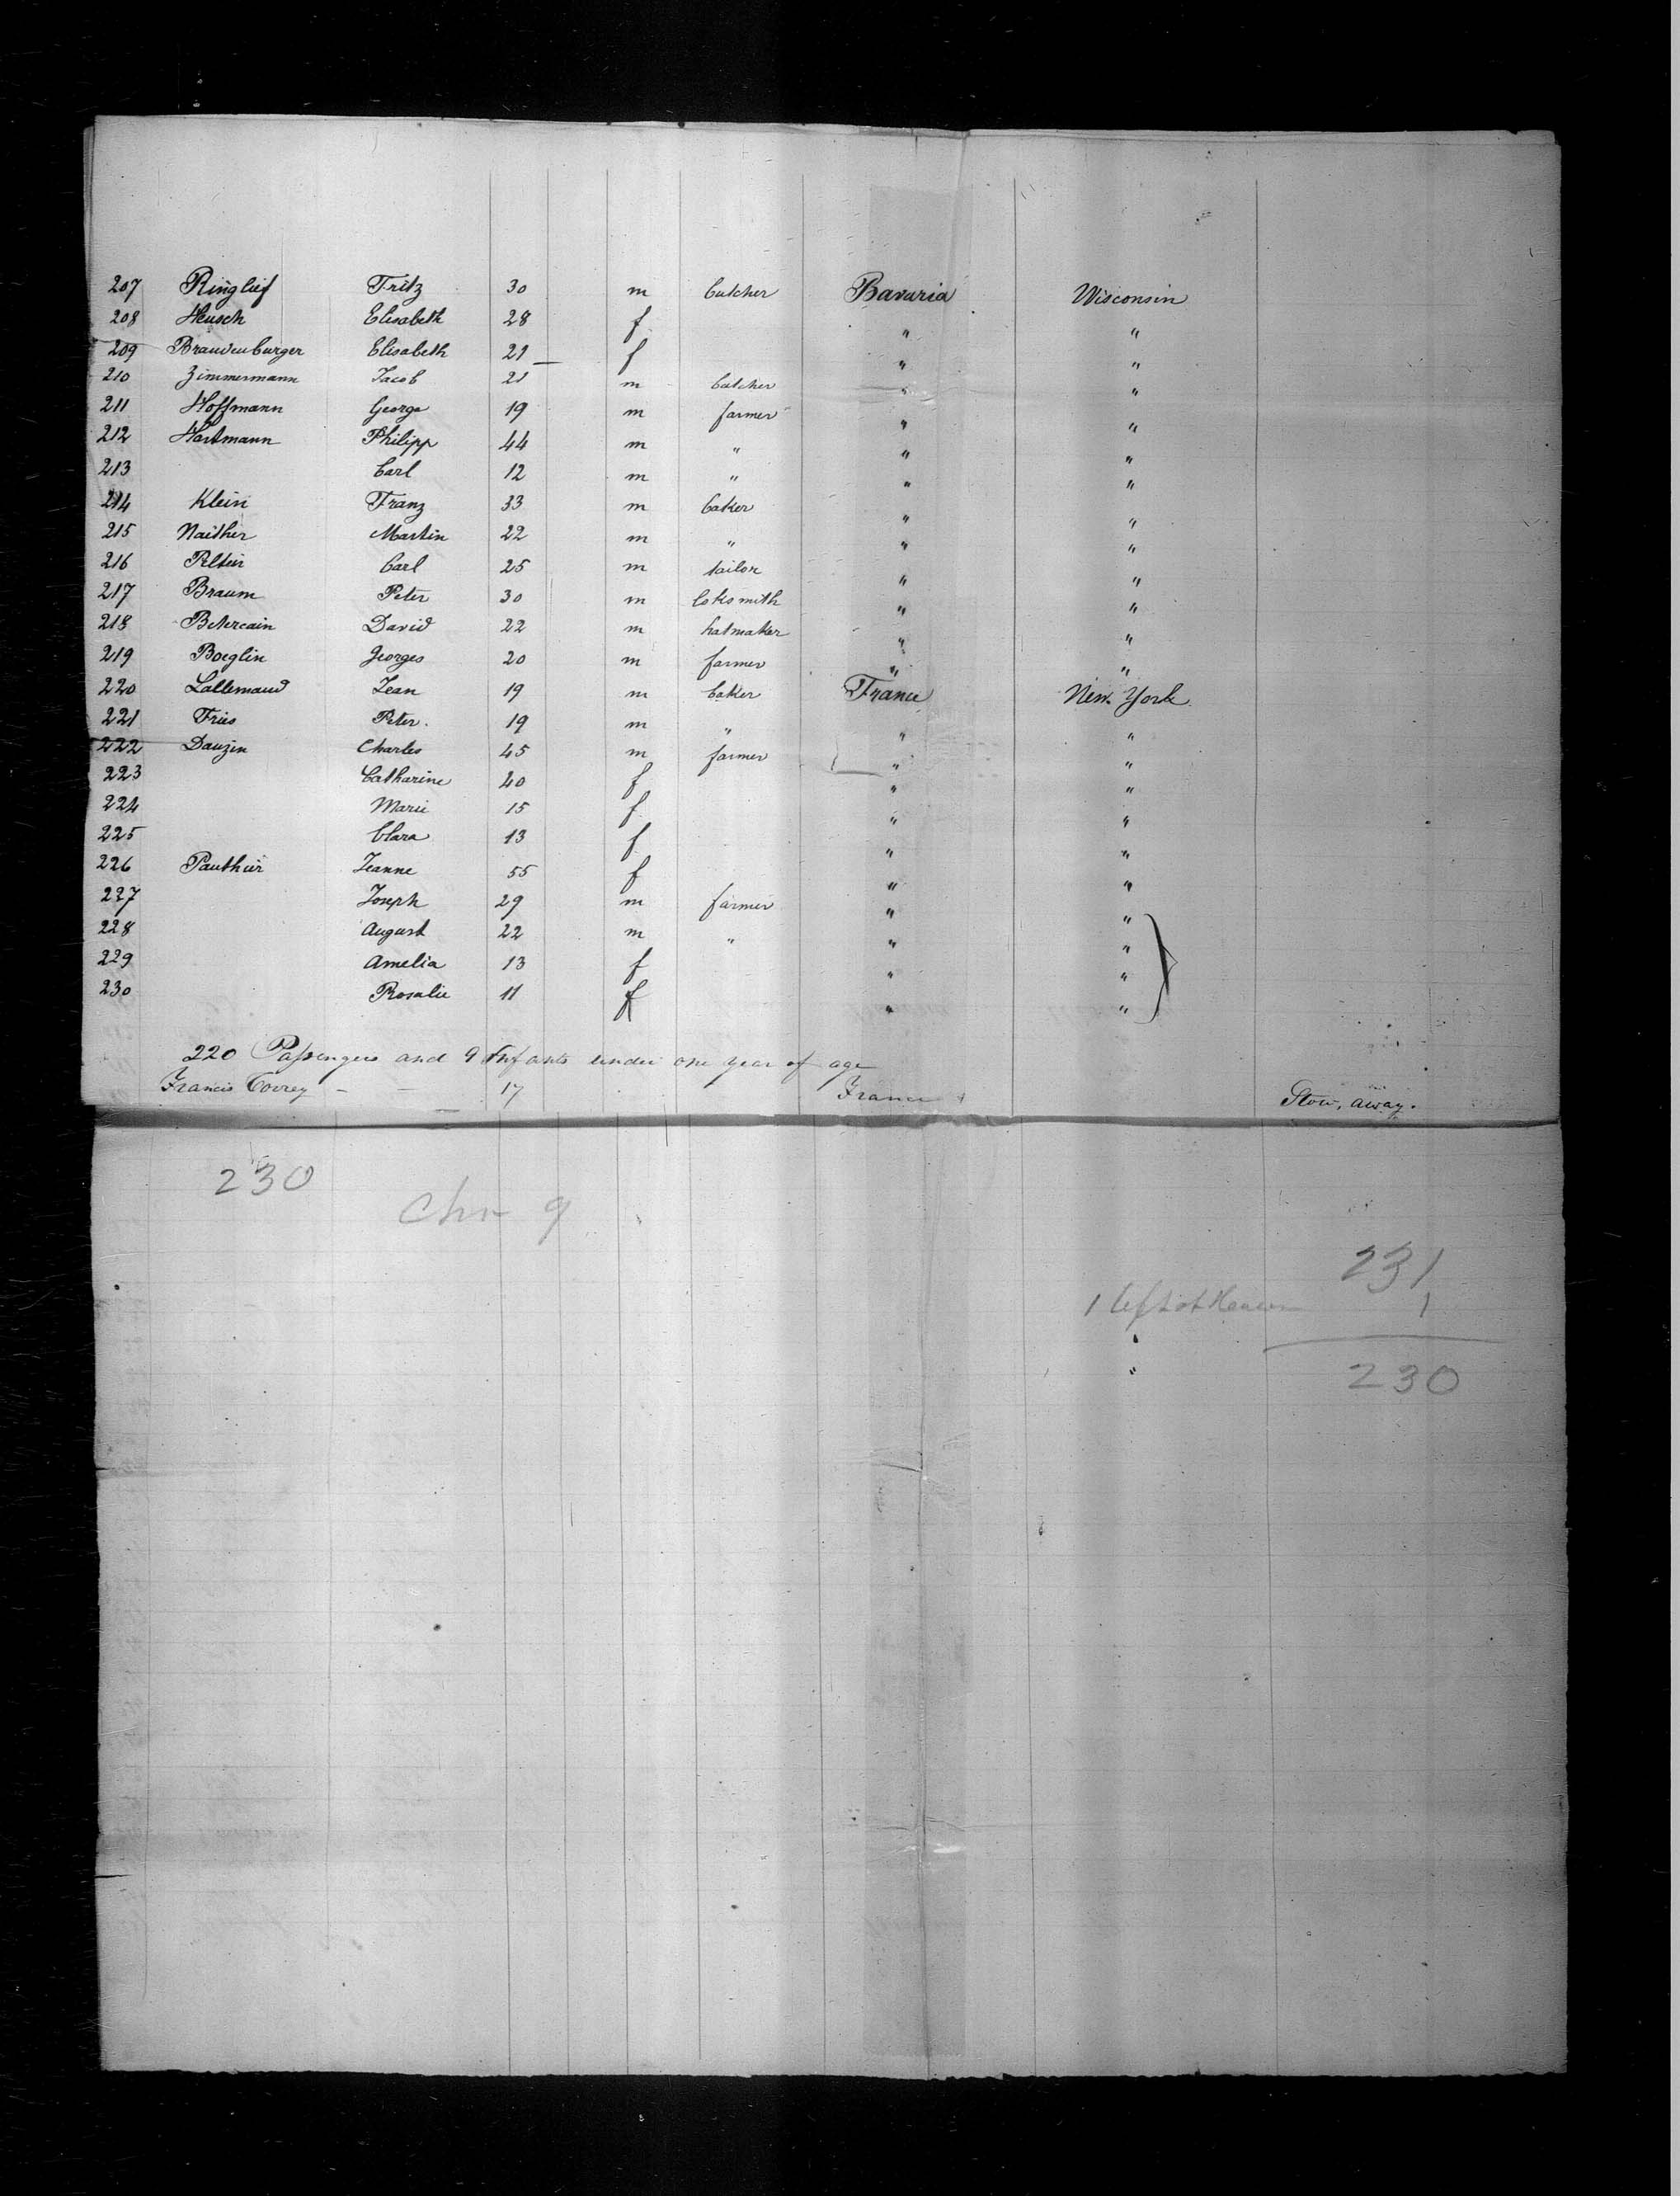 207 Ringlief Fritz 30 m butcher Bavaria Wisconsin
208 Heusch Elisabeth 28 f " "
209 Brandenburger Elisabeth 21 f " "
210 Zimmermann Jacob 21 m butcher " "
211 Hoffmann George 19 m farmer " "
212 Hartmann Philipp 44 m " " "
213 Carl 12 m " " "
214 Klein Franz 33 m baker " "
215 Naither Martin 22 m " " "
216 Carl 25 m tailor " "
217 Braum Peter 30 m loksmith " "
218 David 22 m hatmaker " "
219 Boeglin Georges 20 m farmer " "
220 Lallemand Jean 19 m baker France New York
221 Fries Peter 19 m " " "
222 Dauzin Charles 45 m farmer " "
223 Catharine 40 f " "
224 Marie 15 f " "
225 Clara 13 f " "
226 Pauthier Jeanne 55 f " "
227 Joseph 29 m farmer " "
228 August 22 m " " "
229 Amelia 13 f " "
230 Rosalie 11 f " "
220 Passengers and 9 Infants under one year of age
Francis Torrey - - 17 France Stow, away.
230
9
231
1 left at 1
230